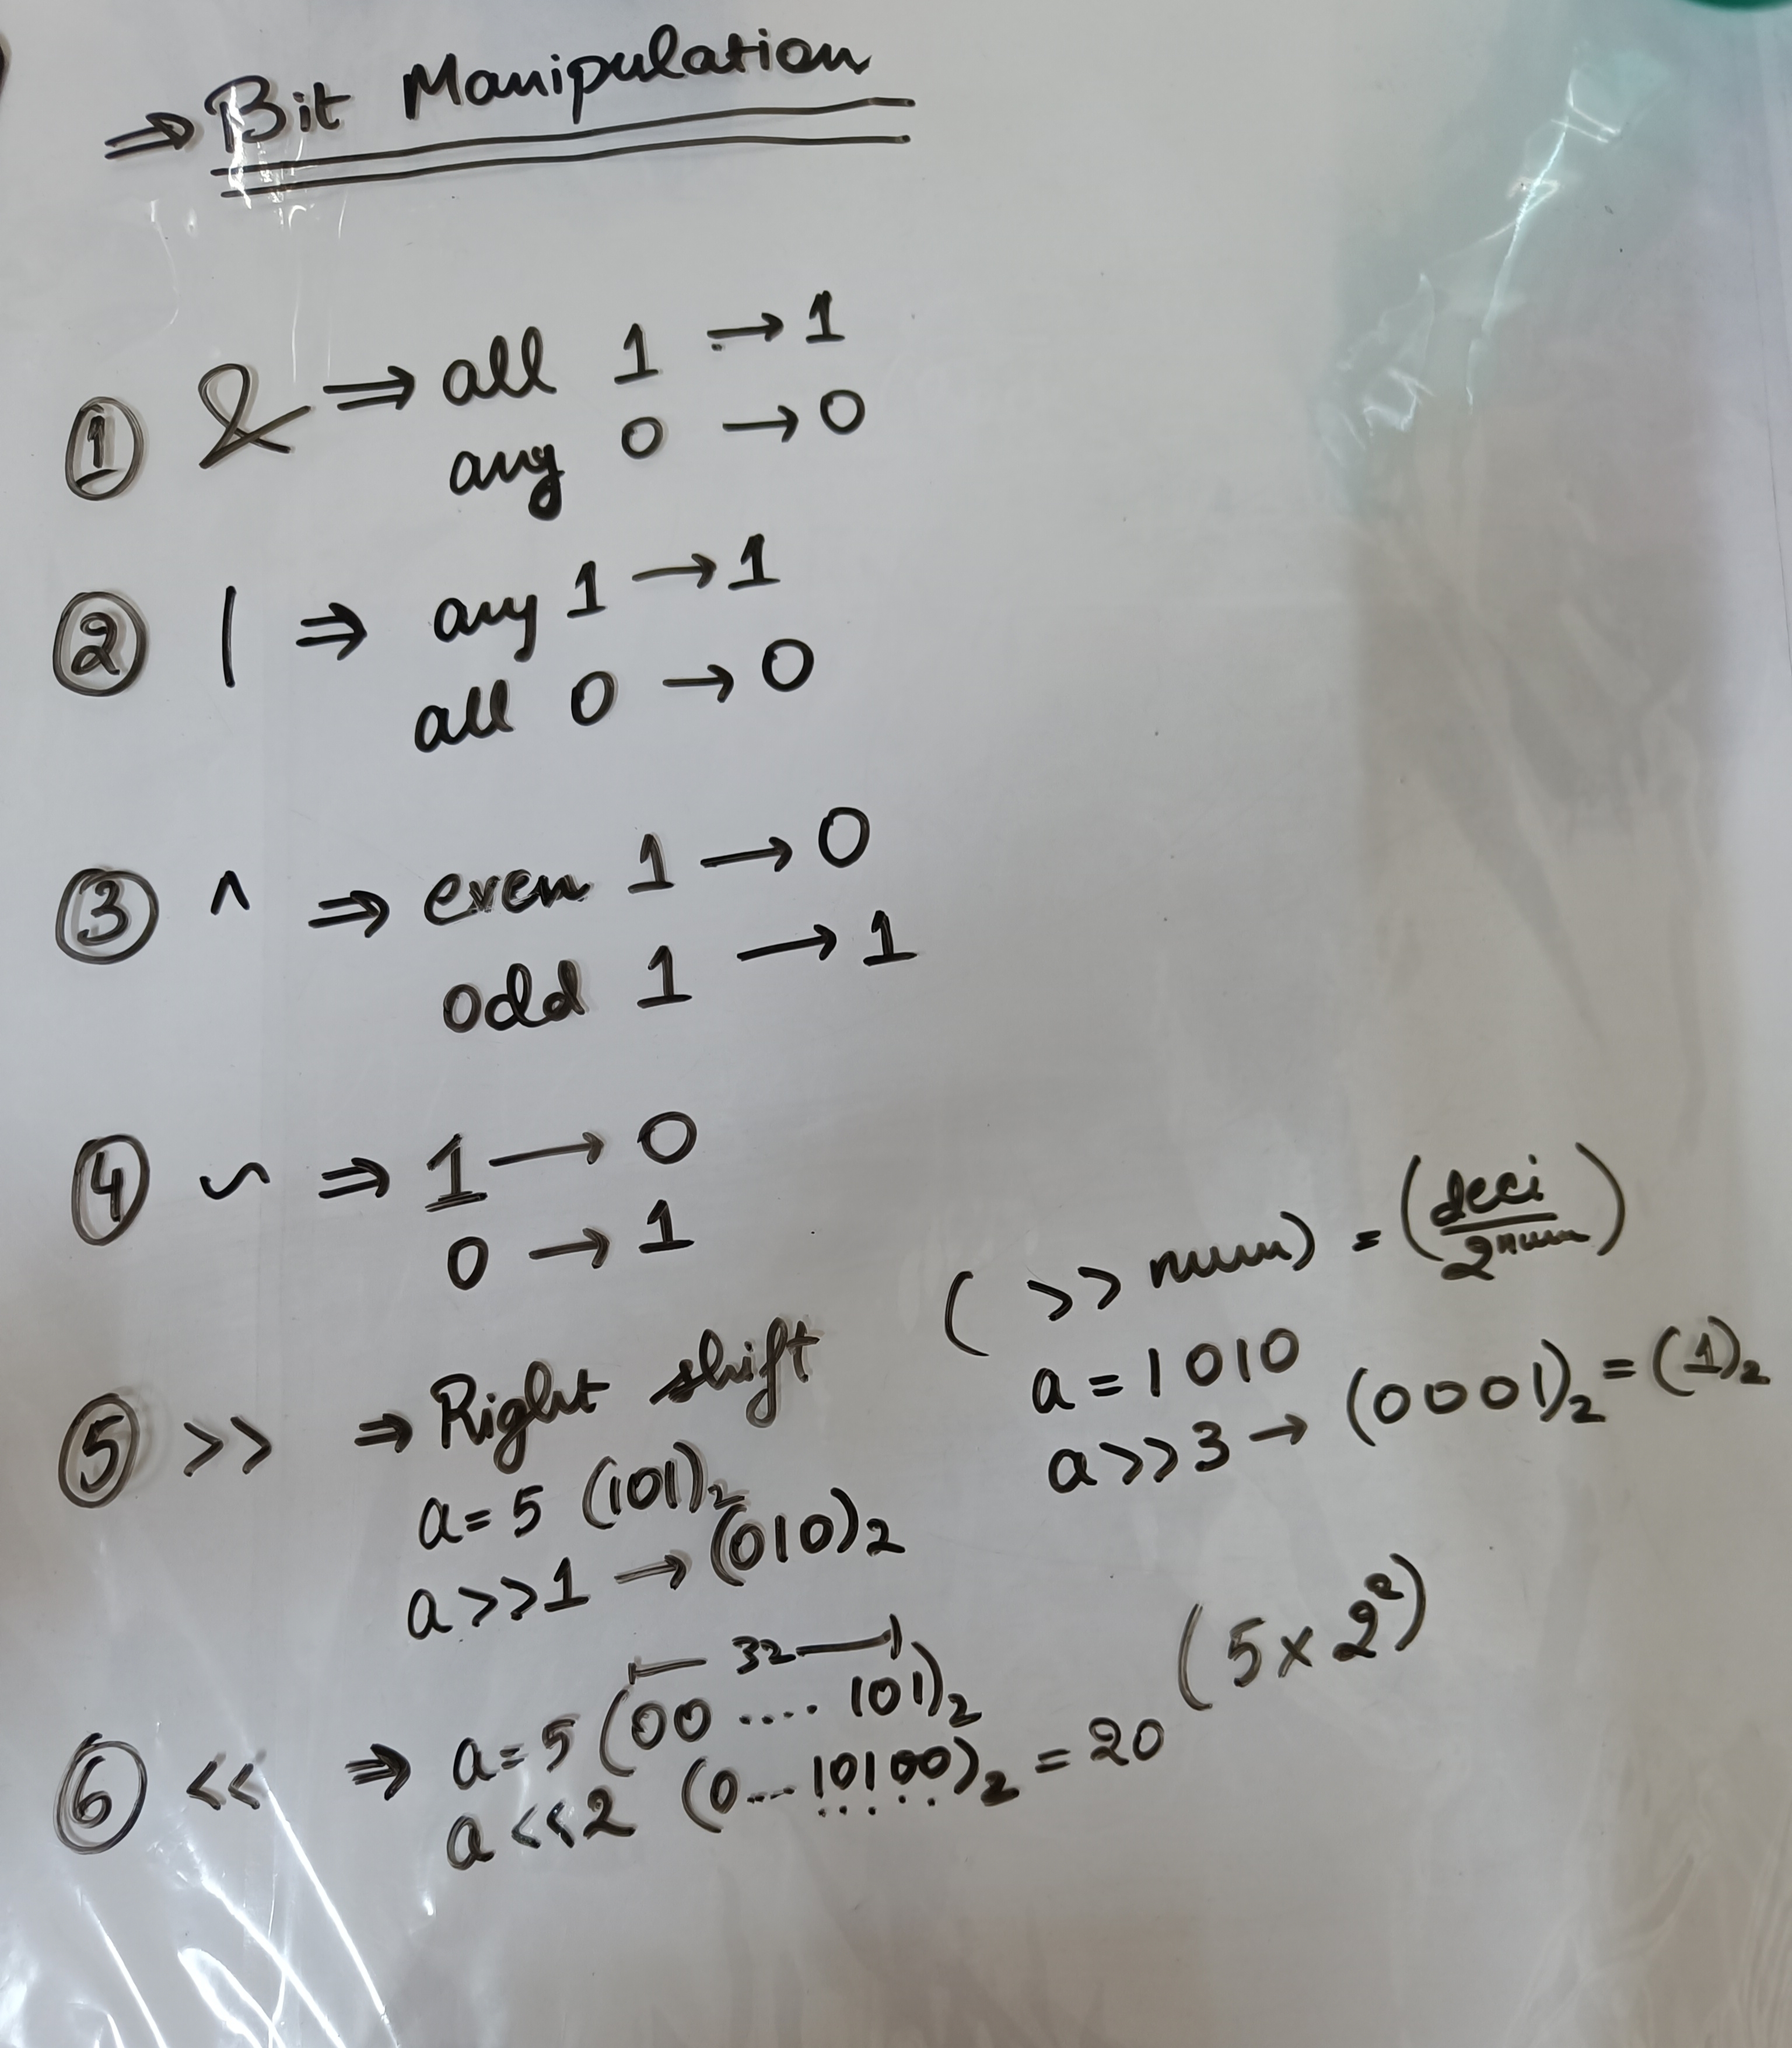 ⇒ Bit Manipulation
① & ⇒ all 1 → 1
any 0 → 0
② | ⇒ any 1 → 1
all 0 → 0
③ ^ ⇒ even 1 → 0
odd 1 → 1
④ ~ ⇒ 1 → 0
0 → 1
⑤ >> ⇒ Right shift
a = 5 (101)₂
a>>1 → (010)₂
( >> num) = (deci/2ⁿᵘᵐ)
a = 1010
a>>3 → (0001)₂ = (1)₂
32
⑥ << ⇒ a = 5 (00 .... 101)₂
a<<2 (0...10100)₂ = 20 (5×2²)